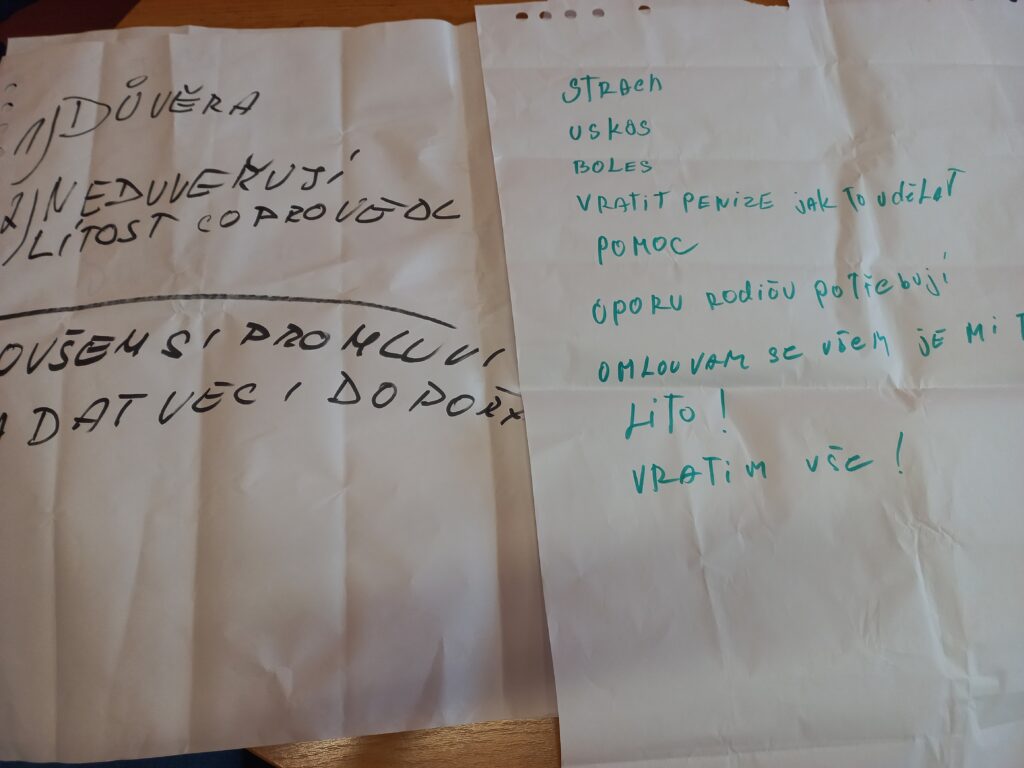 1) DŮVĚRA
2) NEDUVEŘUJÍ
LÍTOST CO PROVEDL
OVŠEM SI PROMLUVI
DAT VECI DO POŘA
STRACH
USKOS
BOLES
VRATIT PENIZE jak To udělaT
POMOC
OPORU RODIČU POTřEbUJÍ
OMLOUVAM SE VŠEM JE MI T
LITO!
VRATIM VŠE!